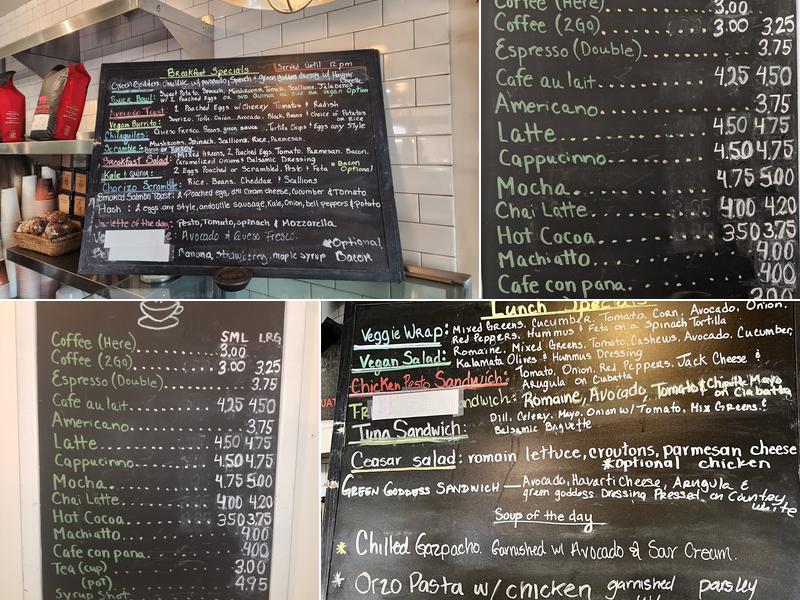 Breakfast Specials
Served until 12pm
Green Goddess: Omelette w/ Avocado, Spinach & Green Goddess dressing w/ Havarti Cheese
Power Bowl: Sweet Potato, Spinach, Mushrooms, Tomato, Scallions, Jalapeno
w/ 2 Poached Eggs or Sub Quinoa or Rice for Vegan Option
Avocado Toast: 2 Poached Eggs w/ Cherry Tomato & Radish
Vegan Burrito: Tofu, Onion, Avocado, Black Beans & choice of Potatoes or Rice
Chilaquiles: Queso Fresco, Beans, green sauce, Tortilla Chips & Eggs any Style
Scramble: Bacon or Turkey Mushrooms, Spinach, Scallions, Rice, Parmesan.
Breakfast Salad: Mixed Greens, 2 Poached Eggs, Tomato, Parmesan, Bacon,
Caramelized Onions & Balsamic Dressing
Kale & quinoa: 2 Eggs Poached or Scrambled, Pesto & Feta
*Bacon Optional
Chorizo Scramble: Rice, Beans, Cheddar & Scallions
Smoked Salmon Toast: 2 Poached egg, dill cream cheese, cucumber & Tomato
Hash: 2 eggs any style, andouille sausage, Kale, Onion, bell peppers & potato
Omelette of the day: Pesto, Tomato, spinach & Mozzarella
: Avocado & Queso Fresco.
*Optional Bacon
Be : Banana, strawberry, maple syrup
Coffee (Here) 3.00
Coffee (2Go) 3.00 3.25
Espresso (Double) 3.75
Cafe au lait 4.25 4.50
Americano 3.75
Latte 4.50 4.75
Cappuccino 4.50 4.75
Mocha 4.75 5.00
Chai Latte 4.00 4.20
Hot Cocoa 3.50 3.75
Machiatto 4.00
Cafe con pana 4.00
3.00
SML LRG
Coffee (Here) 3.00
Coffee (2Go) 3.00 3.25
Espresso (Double) 3.75
Cafe au lait 4.25 4.50
Americano 3.75
Latte 4.50 4.75
Cappuccino 4.50 4.75
Mocha 4.75 5.00
Chai Latte 4.00 4.20
Hot Cocoa 3.50 3.75
Machiatto 4.00
Cafe con pana 4.00
Tea (cup) 3.00
(pot) 4.95
Syrup Shot
Lunch Specials
Veggie Wrap: Mixed Greens, Cucumber, Tomato, Corn, Avocado, Onion,
Red Peppers, Hummus & Feta on a Spinach Tortilla
Vegan Salad: Romaine, Mixed Greens, Tomato, Cashews, Avocado, Cucumber,
Kalamata Olives & Hummus Dressing
Chicken Pesto Sandwich: Tomato, Onion, Red Peppers, Jack Cheese &
Arugula on Ciabatta
Fr ndwich: Romaine, Avocado, Tomato & Chipotle Mayo
on Ciabatta
Tuna Sandwich: Dill, Celery, Mayo, Onion w/ Tomato, Mix Greens &
Balsamic Baguette
Ceasar salad: romain lettuce, croutons, parmesan cheese
*optional chicken
Green Goddess Sandwich — Avocado, Havarti Cheese, Arugula &
green goddess Dressing Pressed on Country White
Soup of the day
* Chilled Gazpacho. Garnished w/ Avocado & Sour Cream.
* Orzo Pasta w/ chicken garnished parsley